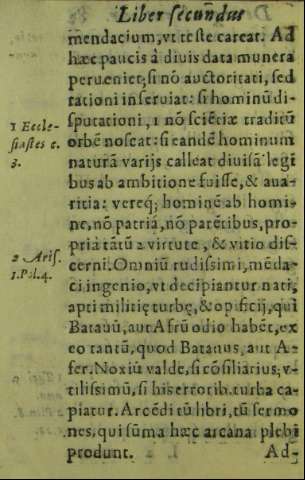 Liber secundus
mendacium, vt teste careat. Ad
hæc paucis à diuis data munera
perueniet, si nō auctoritati, sed
rationi inseruiat: si hominū di-
sputationi, 1 nō sciētiæ traditū
1 Eccle-
siastes c.
3.
orbē noscat: si eandē hominum
naturā varijs calleat diuisā legi
bus ab ambitione fuisse, & aua-
ritia: vereq; hominē ab homi-
ne, nō patria, nō parētibus, pro-
pria tātū 2 virtute, & vitio dis-
2 Aris.
1. Pol. 4.
cerni. Omniū rudissimi, mēda-
ci ingenio, vt decipiantur nati,
apti militię turbę, & opificij, qui
Batauū, aut Afrū odio habēt, ex
eo tantū, quod Batauus, aut A-
fer. Noxiū valde, si cōsiliarius, v-
tilissimū, si his erroribꝰ turba ca-
piatur. Arcēdi tū libri, tū sermo
nes, qui sūma hæc arcana plebi
produnt. Ad-